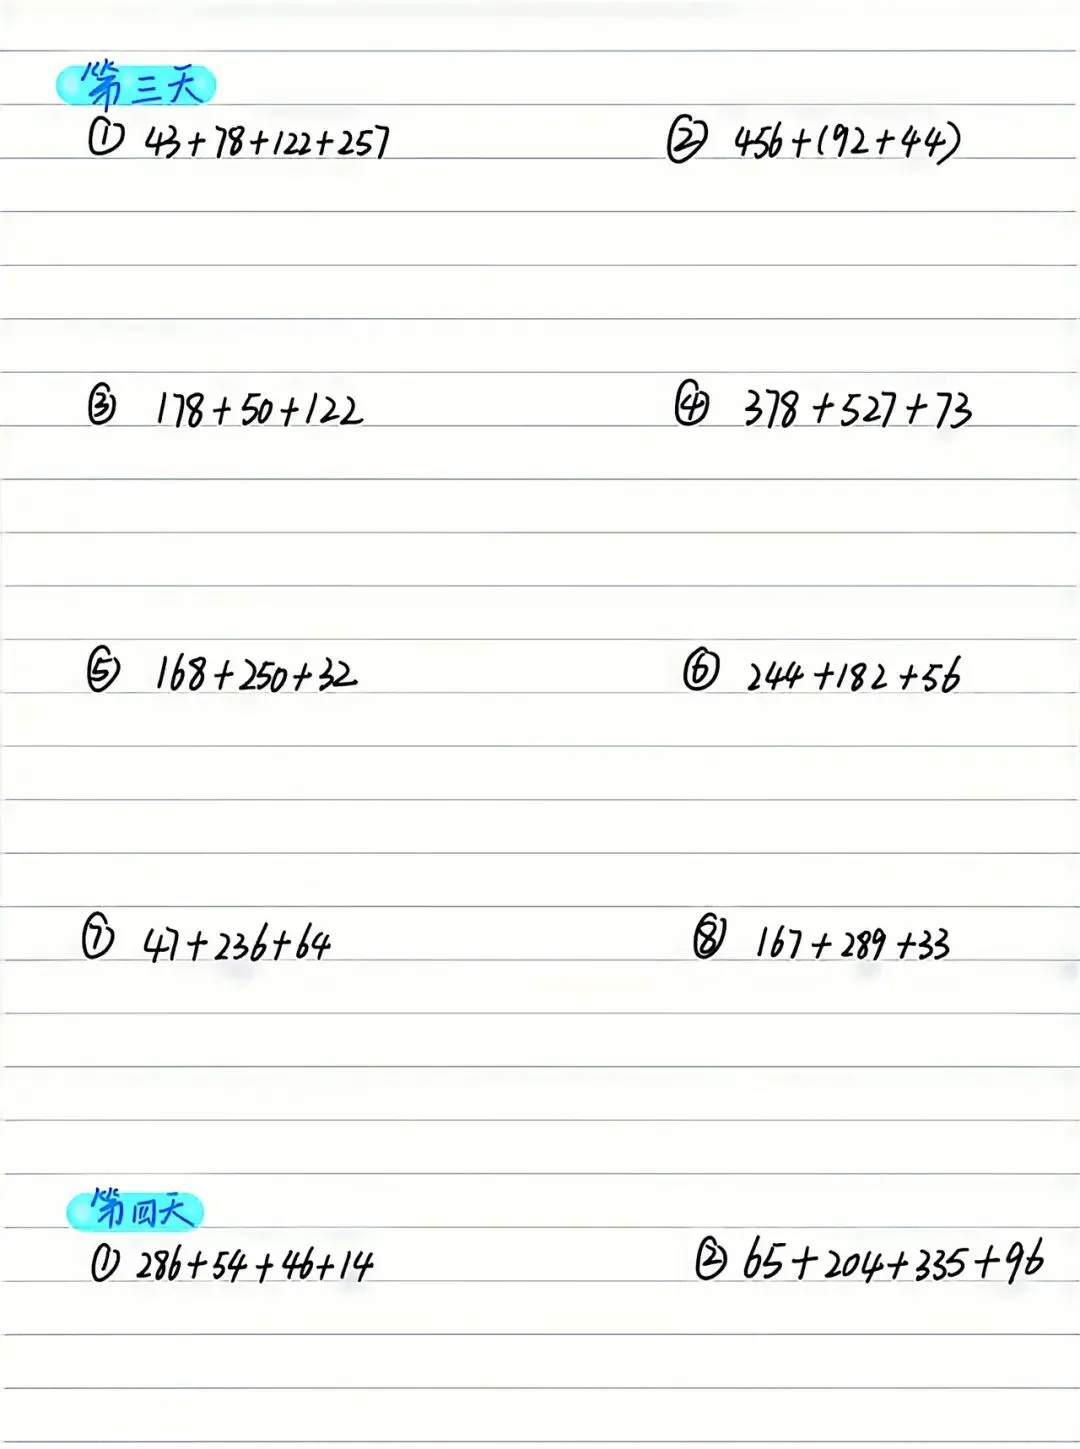 第三天
① 43+78+122+257 ② 456+(92+44)
③ 178+50+122 ④ 378+527+73
⑤ 168+250+32 ⑥ 244+182+56
⑦ 47+236+64 ⑧ 167+289+33
第四天
① 286+54+46+14 ② 65+204+335+96